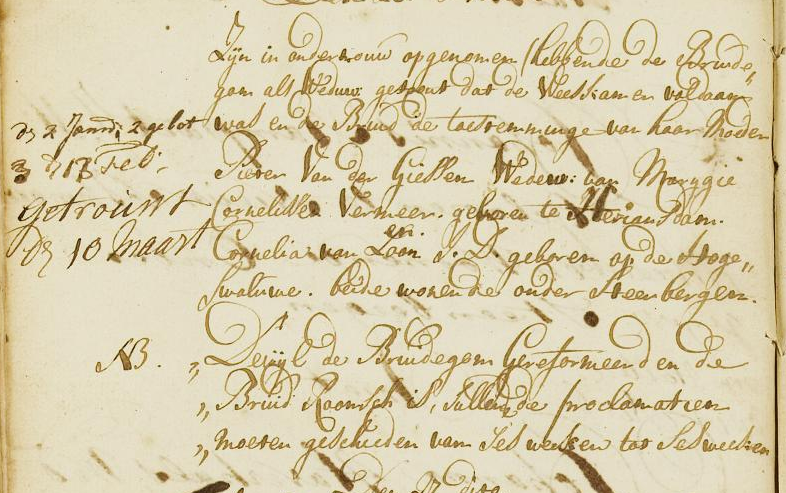 Zijn in ondertrouw opgenomen (hebbende de Bruide„
gom als Weduw: getoont dat de Weeskamer voldaan
was en de Bruid de toestemminge van haar Moeder
Pieter Van der Giessen Weduw: van Marygie
Cornelisse Vermeer. geboren te
en
Cornelia van Loon J. D. geboren op de Hoge„
Swaluwe. beide wonende onder Steenbergen.
de 2 2 gebot
3 d 13 Feb:
getrouwt
de 10 Maart
NB. „Dewijl de Bruidegom Gereformeerd en de
„Bruid Roomsch is, sullen de proclamatien
„moeten geschieden van ses weeken tot ses weeken